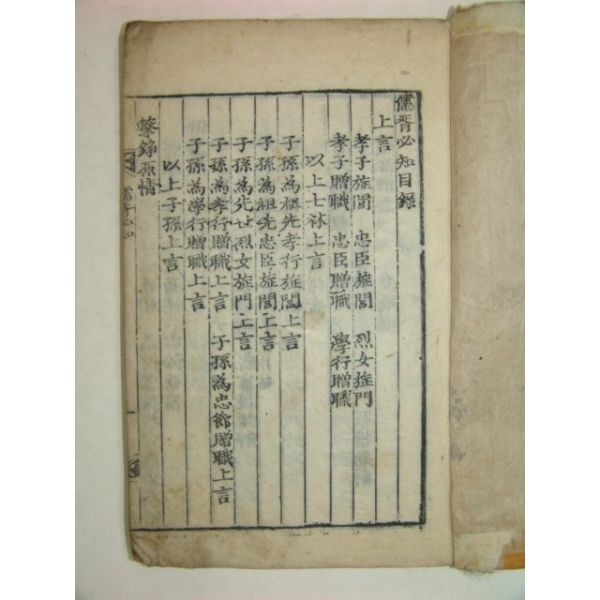 儒胥必知目錄
上言
孝子㫌閭 忠臣㫌閭 烈女㫌門
孝子贈職 忠臣贈職 學行贈職
以上士林上言
子孫為祖先孝行㫌閭上言
子孫為祖先忠臣㫌閭上言
子孫為先世烈女㫌門上言
子孫為孝行贈職上言 子孫為忠節贈職上言
子孫為學行贈職上言
以上子孫上言
擊錚原情